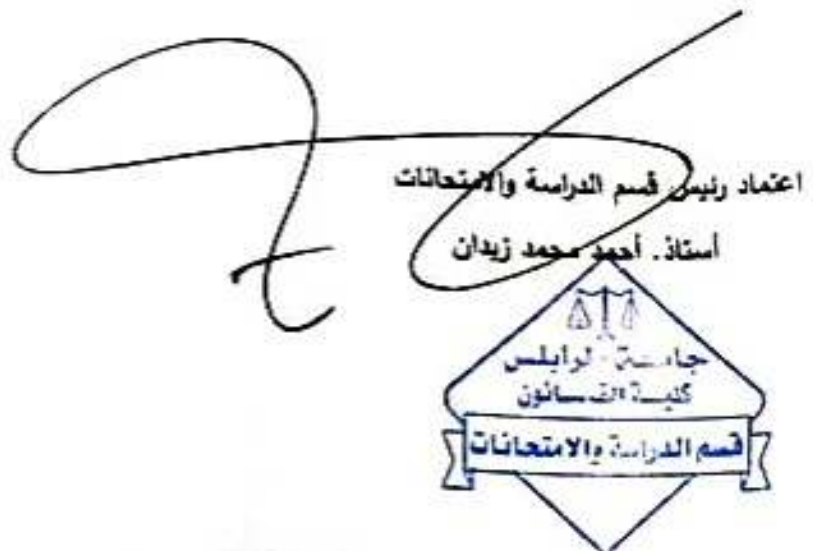 اعتماد رئيس قسم الدراسة والامتحانات
أستاذ. أحمد محمد زيدان
جامعة طرابلس
كلية القانون
قسم الدراسة والامتحانات